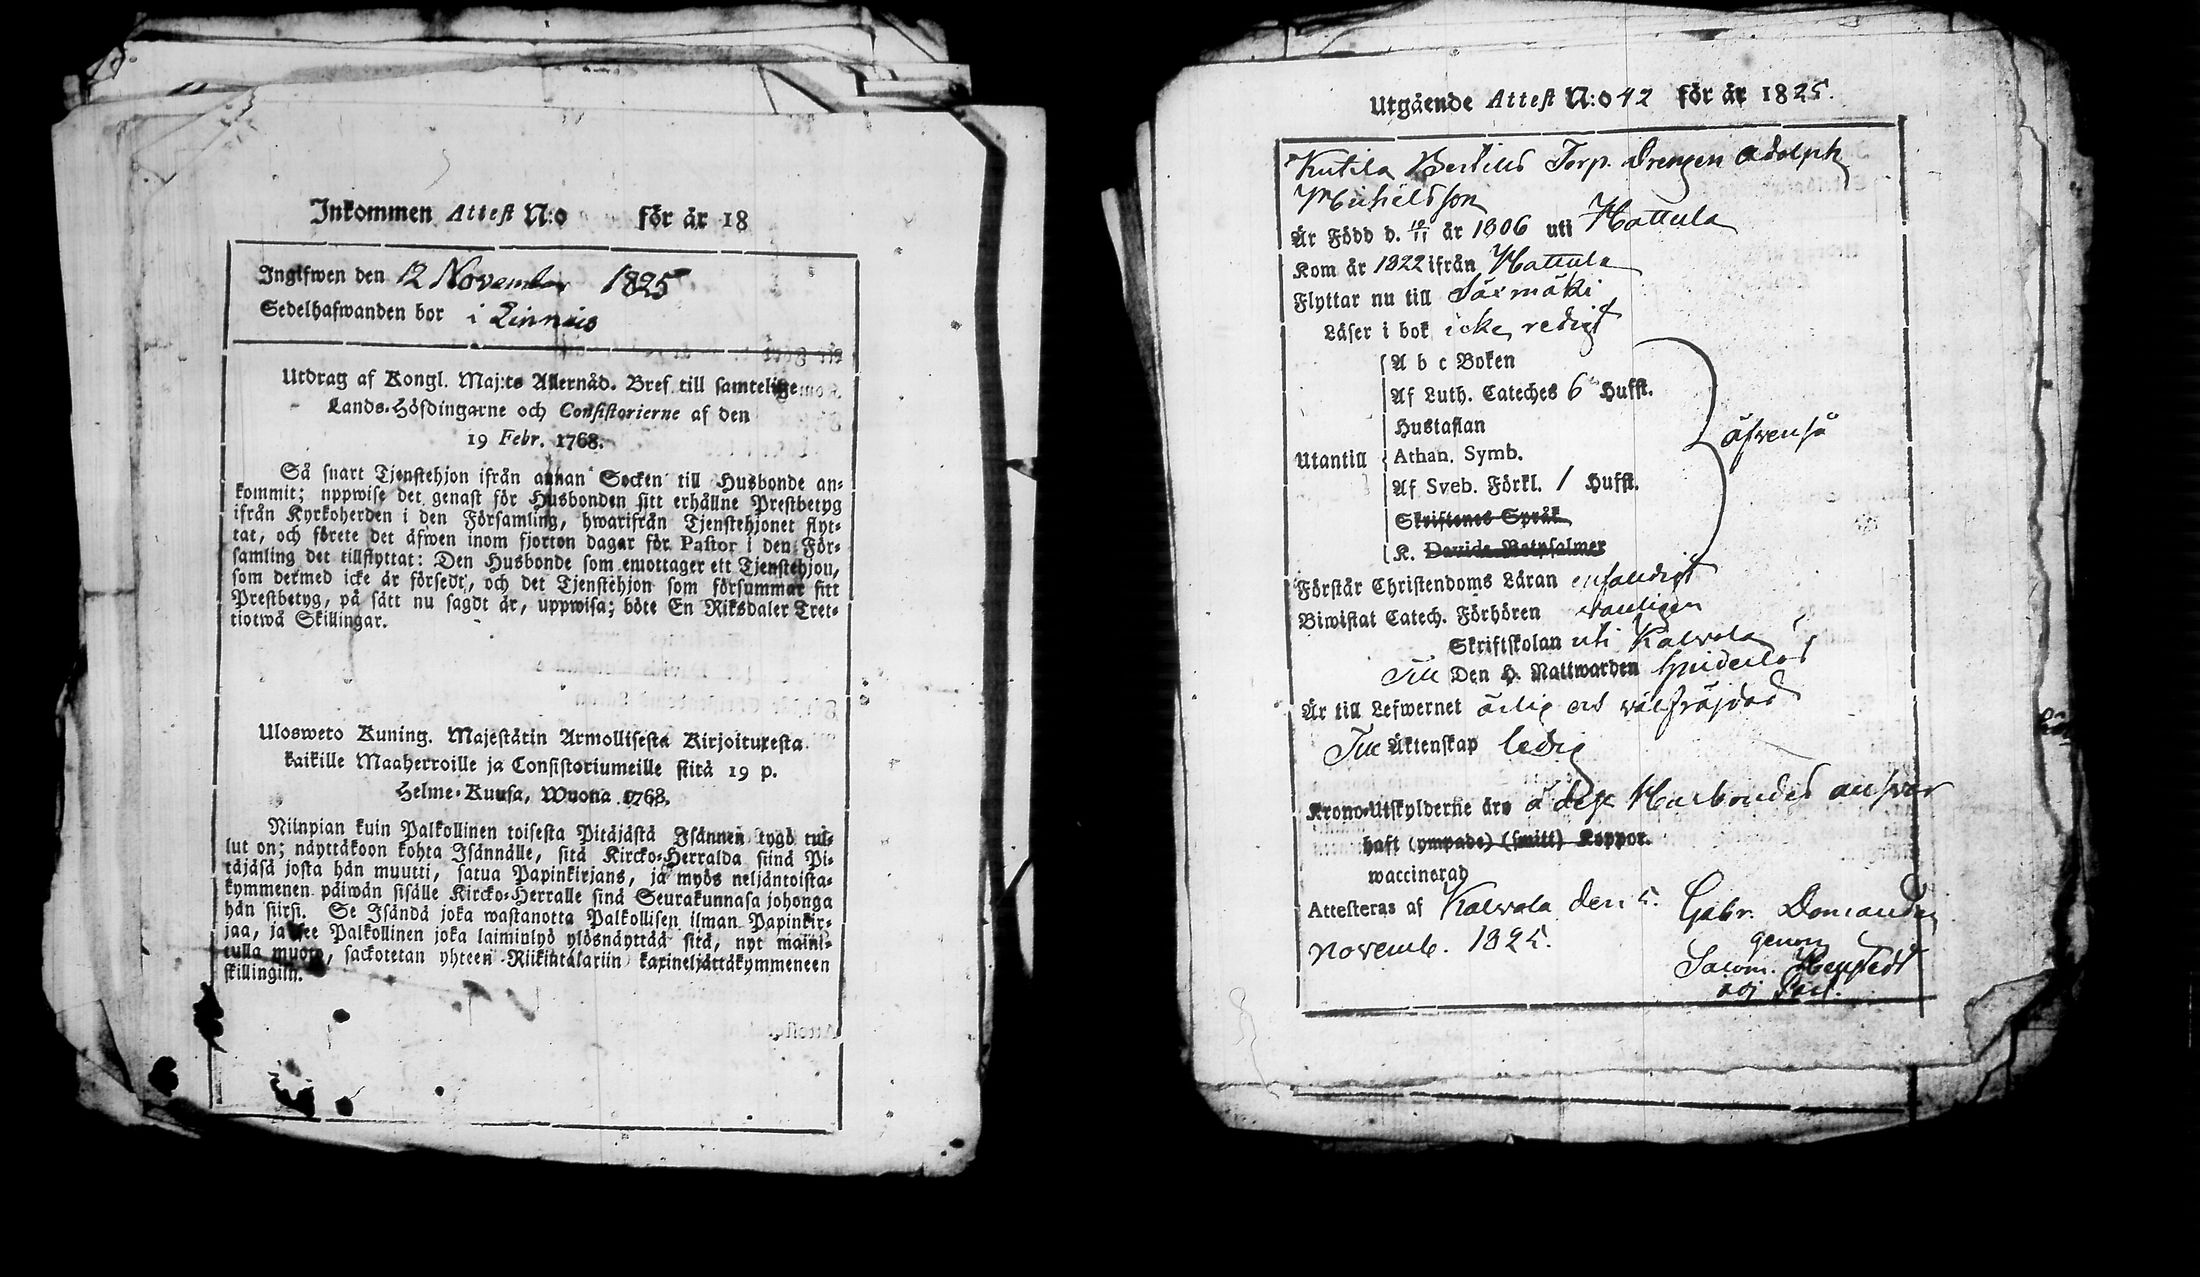 Inkommen Attest N:o för år 18
Ingifwen den 12 November 1825
Sedelhafwanden bor i Linnais
Utdrag af Kongl. Maj:ts Allernåd. Bref till samtelige
Lands-Höfdingarne och Consistorierne af den
19 Febr. 1768.
Så snart Tjenstehjon ifrån annan Socken till Husbonde an-
kommit; uppwise det genast för Husbonden sitt erhållne Prestbetyg
ifrån Kyrkoherden i den Församling, hwarifrån Tjenstehjonet flyt-
tat, och förete det äfwen inom fjorton dagar för Pastor i den För-
samling det tillflyttat: Den Husbonde som emottager ett Tjenstehjon,
som dermed icke är försedt, och det Tjenstehjon som försummar sitt
Prestbetyg, på sätt nu sagdt är, uppwisa; böte En Riksdaler Tret-
tiotwå Skillingar.
Ulosweto Kuning. Majestätin Armollisesta Kirjoituxesta
kaikille Maaherroille ja Consistoriumeille siitä 19 p.
Helme-Kuusa, Wuona 1768.
Niinpian kuin Palkollinen toisesta Pitäjästä Isännen tygö tul-
lut on; näyttäköön kohta Isännälle, sitä Kircko-Herralda siinä Pi-
täjäsä josta hän muutti, saatua Papinkirjans, ja myös neljäntoista-
kymmenen päiwän sisälle Kircko-Herralle siinä Seurakunnasa johonga
hän siirsi. Se Isändä joka wastanotta Palkollisen ilman Papinkir-
jaa, ja see Palkollinen joka laiminlyö ylösnäyttää sitä, nyt maini-
tulla muoto, sackotetan yhteen Riikintalariin kaxineljättäkymmeneen
skillingiin.
Utgående Attest N:o 42 för år 1825.
Kutila Bertills Torp. Drengen Adolph
Michelsson
Är Född d. 12/11 år 1806 uti Hattula
Kom år 1822 ifrån Hattula
Flyttar nu till Säxmäki
Läser i bok icke redigt
A b c Boken
Af Luth. Cateches 6 Hufst.
Hustaflan
Utantill Athan. Symb. äfvenså
Af Sveb. Förkl. 1 Hufst.
Skriftenes Språk
K. Davids Botpsalmer
Förstår Christendoms Läran enfaldigt
Biwistat Catech. Förhören vanligen
Skriftskolan uti Kalvola
Till Den H. Nattwarden hinderlös
Är till Lefwernet ärlig och välfräjdad
Till Äktenskap ledig
Krono-Utskylderne äro å dess Husbondes answar
haft (ympade) (smitt) Koppor.
waccinerad
Attesteras af Kalvola den 5. Gabr. Domander
Novemb. 1825. genom
Salom.
adj